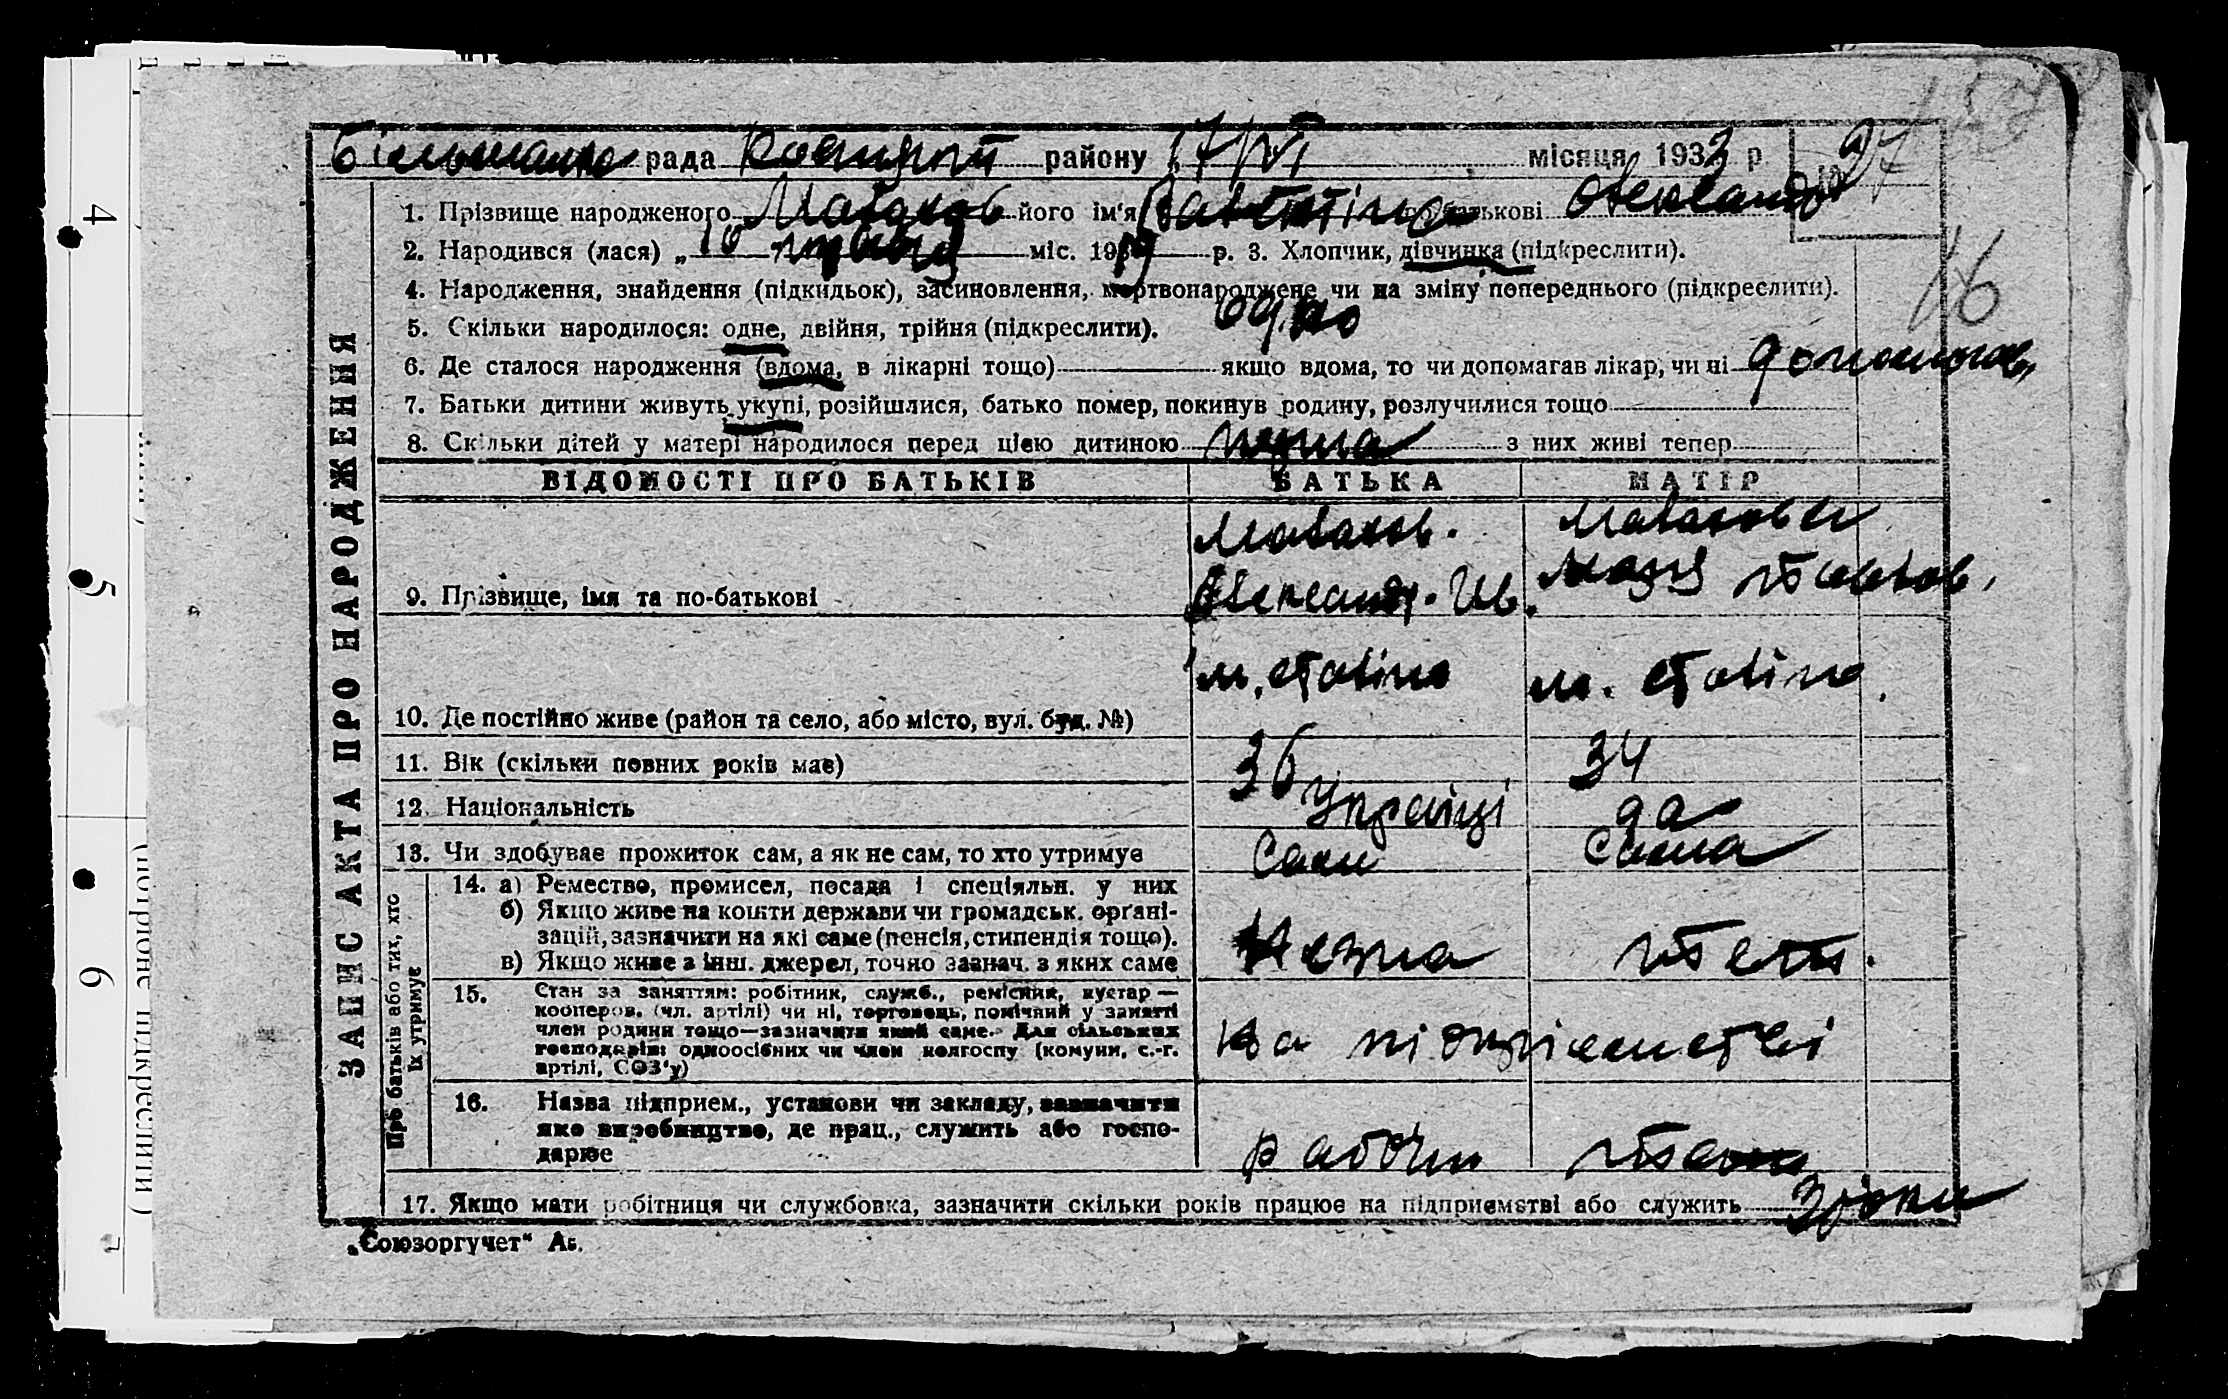 рада району 17/VI місяця 1933 р. 97
1. Прізвище народженого Малахов його ім'я Валентіна по батькові
2. Народився (лася) „ 10 травня міс. 19 р. 3. Хлопчик, дівчинка (підкреслити).
16
4. Народження, знайдення (підкидьок), засиновлення, мертвонароджене чи на зміну попереднього (підкреслити).
5. Скільки народилося: одне, двійня, трійня (підкреслити). одно
6. Де сталося народження (вдома, в лікарні тощо) якщо вдома, то чи допомагав лікар, чи ні допомогав
7. Батьки дитини живуть укупі, розійшлися, батько помер, покинув родину, розлучилися тощо
8. Скільки дітей у матері народилося перед цією дитиною з них живі тепер
ЗАПИС АКТА ПРО НАРОДЖЕННЯ
ВІДОМОСТІ ПРО БАТЬКІВ БАТЬКА МАТІР
Малахов. Малахова
9. Прізвище, імя та по-батькові Александр. Ив. Марія
м. Сталіно м. Сталіно
10. Де постійно живе (район та село, або місто, вул. буд. №)
11. Вік (скільки повних років має) 36 34
12. Національність Українці да
13. Чи здобуває прожиток сам, а як не сам, то хто утримує Сами Сама
Про батьків або тих, хто їх утримує
14. а) Ремество, промисел, посада і спеціяльн. у них
б) Якщо живе на кошти держави чи громадськ. органі-
зацій, зазначити на які саме (пенсія, стипендія тощо).
в) Якщо живе з інш. джерел, точно зазнач. з яких саме
15. Стан за заняттям: робітник, служб., ремісник, кустар —
кооперов. (чл. артілі) чи ні, торговець, помічний у занятті
член родини тощо—зазначити який саме. Для сільських
господарів: одноосібних чи член колгоспу (комуни, с.-г.
артілі, СОЗ'у)
на підприємстві
16. Назва підприєм., установи чи закладу, зазначити
яке виробництво, де прац., служить або госпо-
дарює
рабочи
17. Якщо мати робітниця чи службовка, зазначити скільки років працює на підприємстві або служить 3 роки
„Союзоргучет“
4
5
6
7